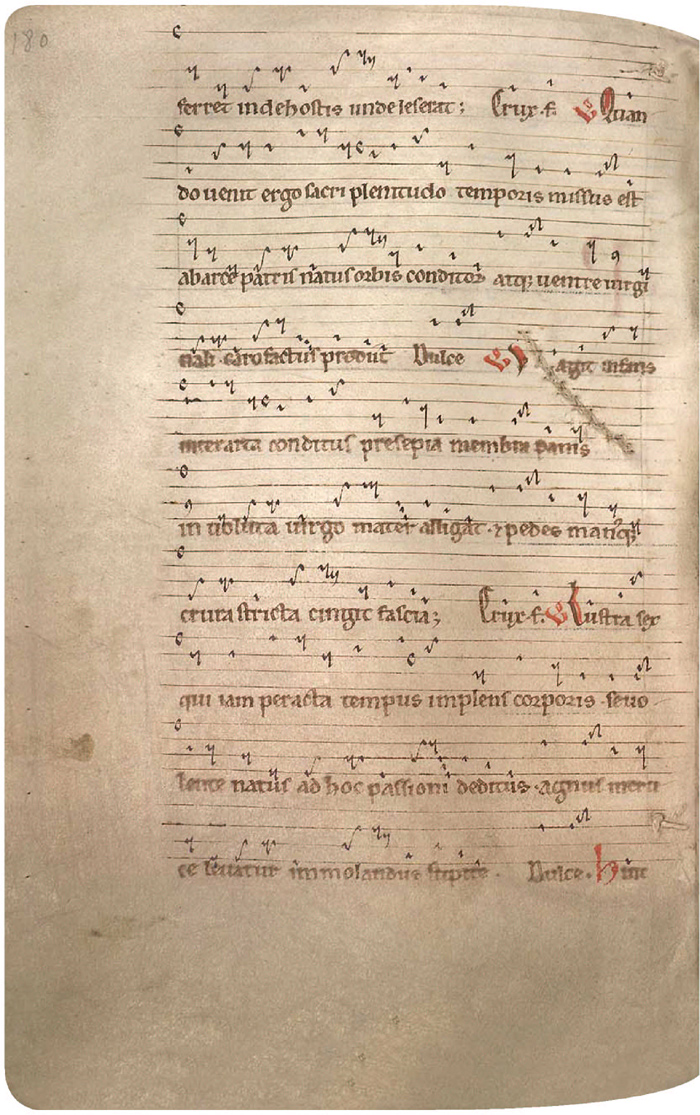 180
ferret inde hostis unde leserat; Crux. f. V Quan
do uenit ergo sacri plenitudo temporis missus est
ab arce patris natus orbis conditor atq; uentre uirgi
nali caro factus prodiit Dulce V agit infans
inter arta conditus presepia membra panis
in uoluta uirgo mater alligat. & pedes manusq;
crura stricta cingit fascia; Crux. f. V Lustra sex
qui iam peracta tempus implens corporis. se uo
lente natus ad hoc passioni deditus. agnus in cru
ce leuatur immolandus stipite. Dulce. hinc